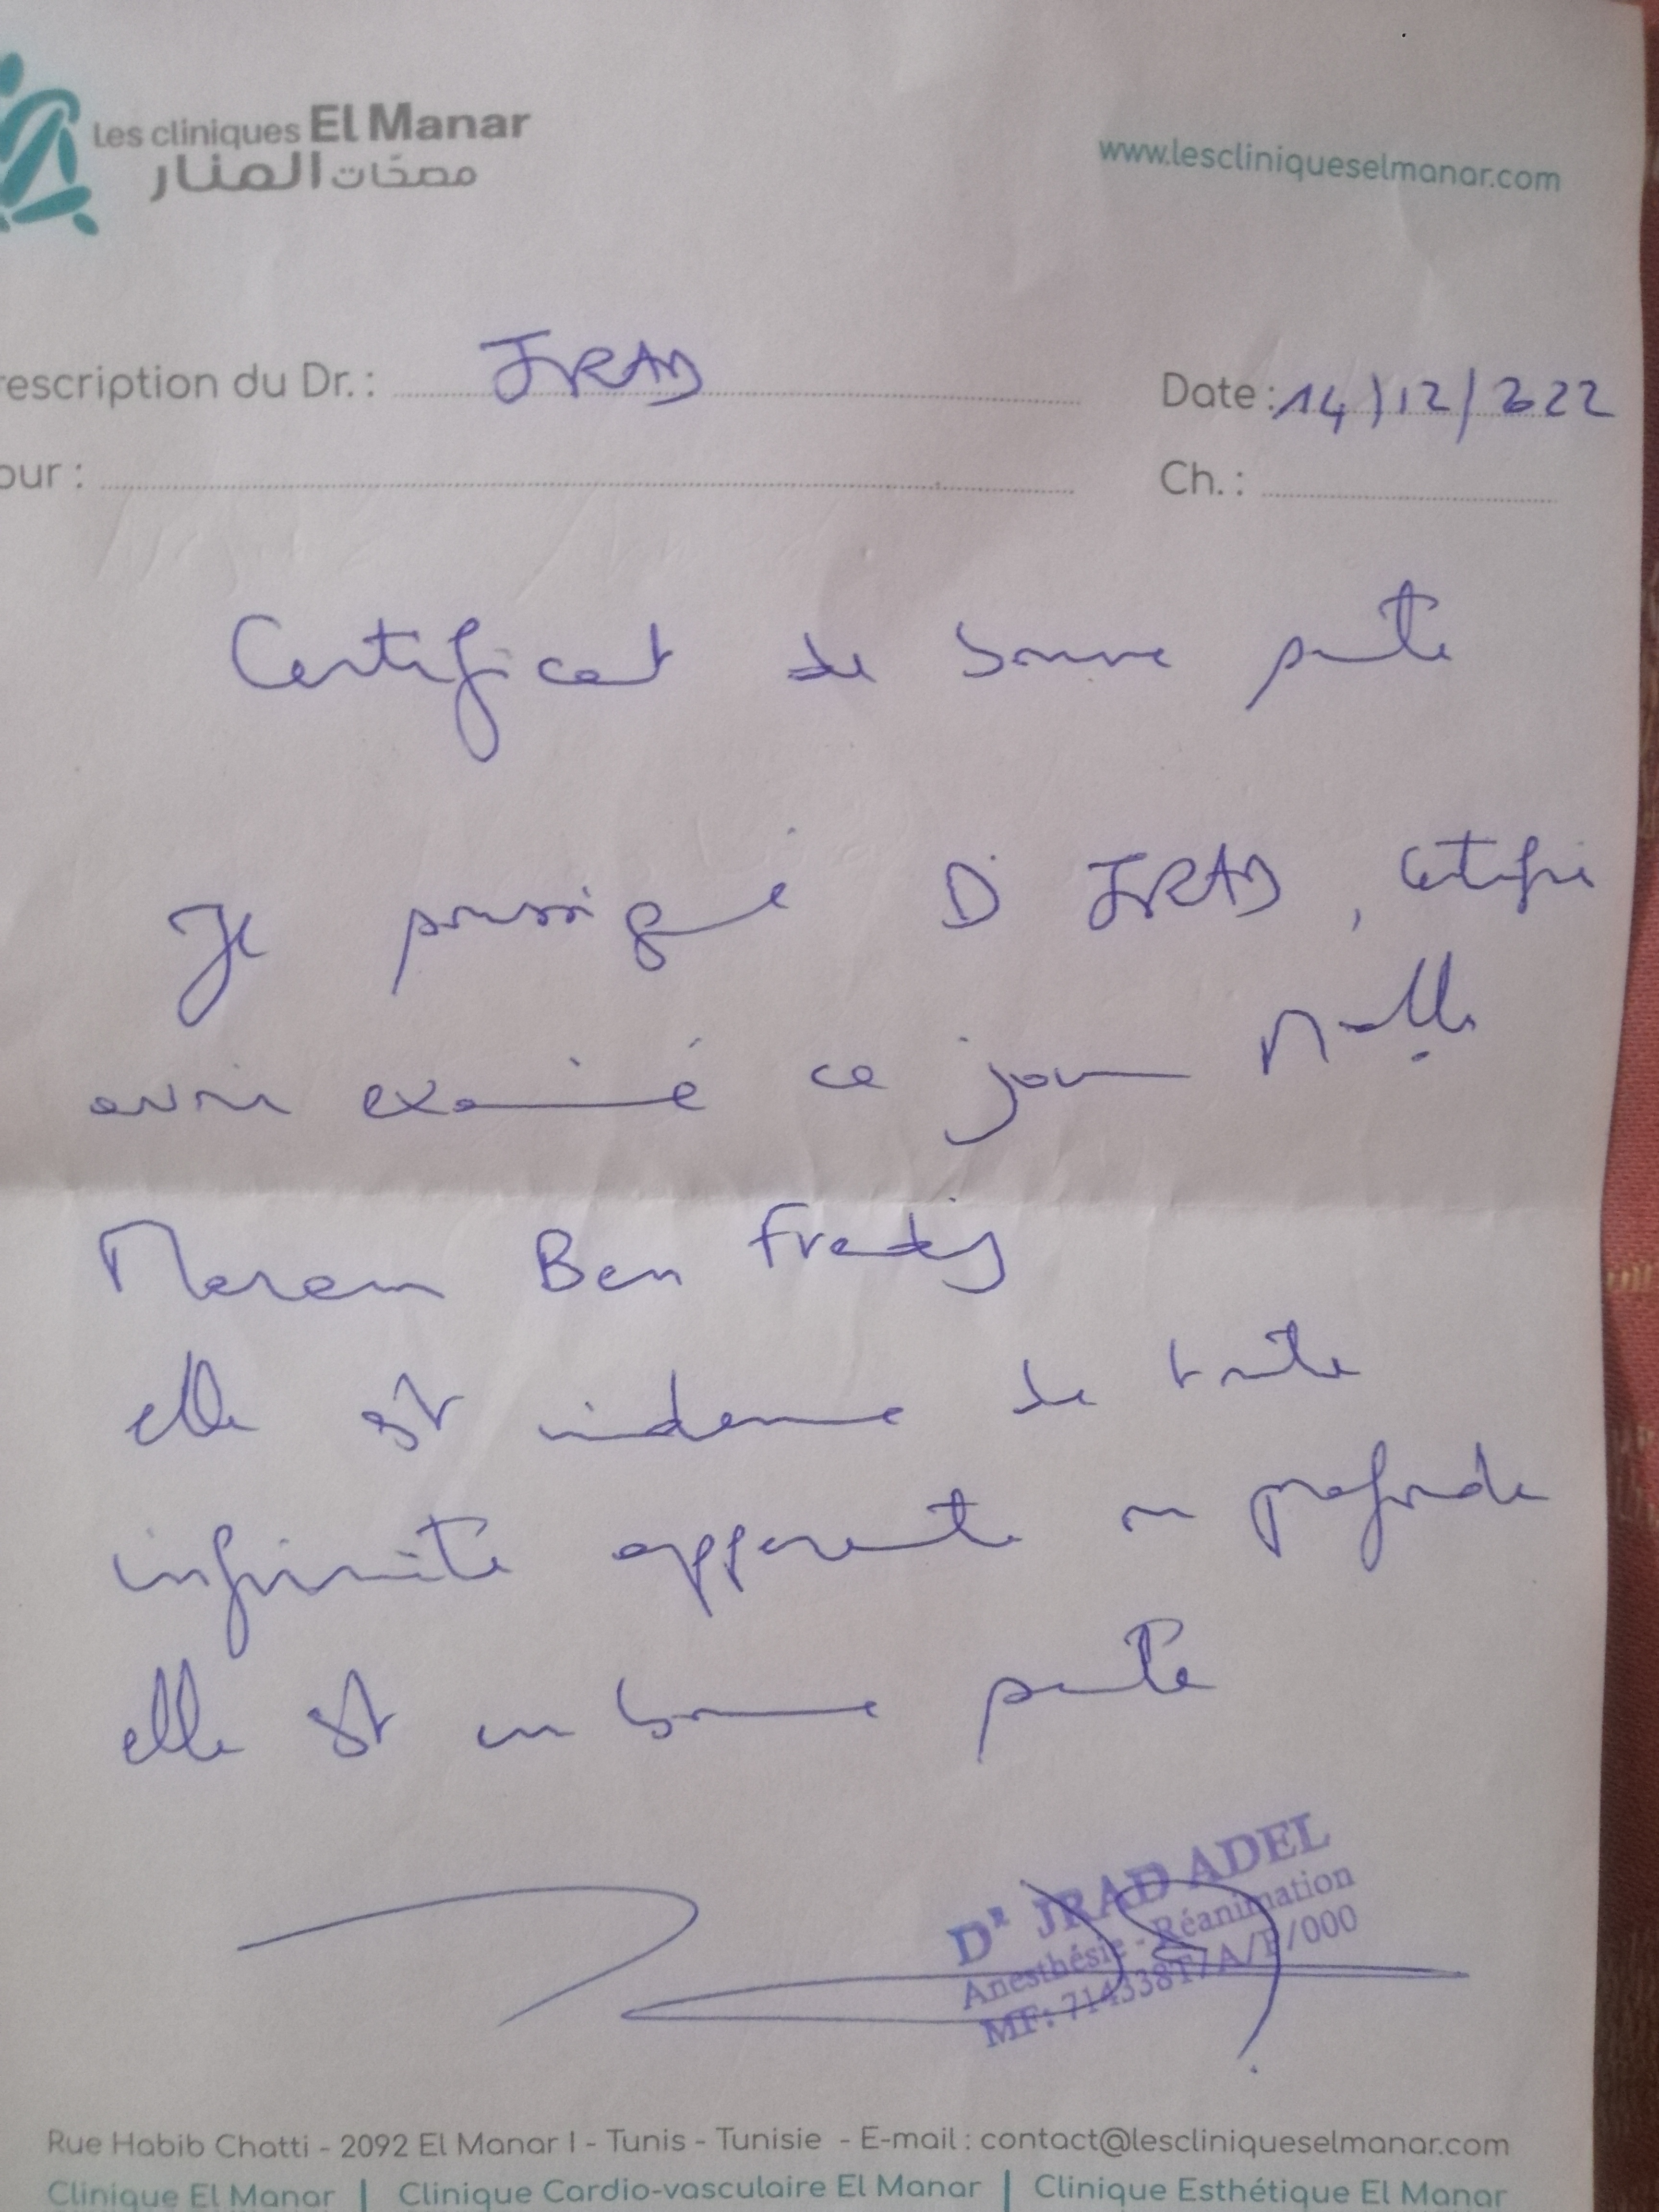 Les cliniques El Manar
مصحّات المنار
www.lescliniqueselmanar.com
rescription du Dr. : JRAD
Date : 14/12/2022
our :
Ch. :
Certificat de bonne sante
Je soussigné Dr JRAD, certifie
avoir examiné ce jour Melle
Maram Ben Fredj
elle est indemne de toute
infirmite apparente ou profonde
elle est en bonne sante
Dr JRAD ADEL
Anesthésie - Réanimation
MF: 714338T/A/P/000
Rue Habib Chatti - 2092 El Manar I - Tunis - Tunisie - E-mail : contact@lescliniqueselmanar.com
Clinique El Manar | Clinique Cardio-vasculaire El Manar | Clinique Esthétique El Manar